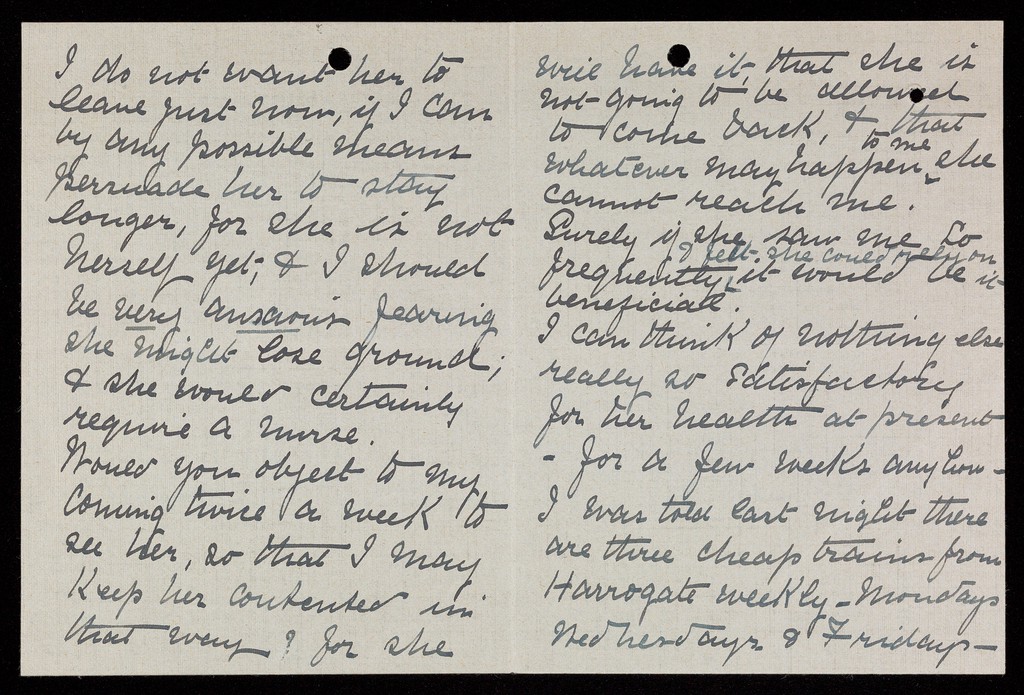 I do not want her to
leave just now, if I can
by any possible means
persuade her to stay
longer, for she is not
herself yet; & I should
be very anxious fearing
she might lose ground;
& she would certainly
require a nurse.
Would you object to my
coming twice a week to
see her, so that I may
keep her contented in
that way? for she
will have it, that she is
not going to be allowed
to come back, & that
to me
whatever may happen, she
cannot reach me.
Surely if she saw me so
& felt she could rely on it
frequently, it would be
beneficial.
I can think of nothing else
really so satisfactory
for her health at present
- for a few weeks anyhow -
I was told last night there
are three cheap trains from
Harrogate weekly - Mondays
Wednesdays & Fridays -